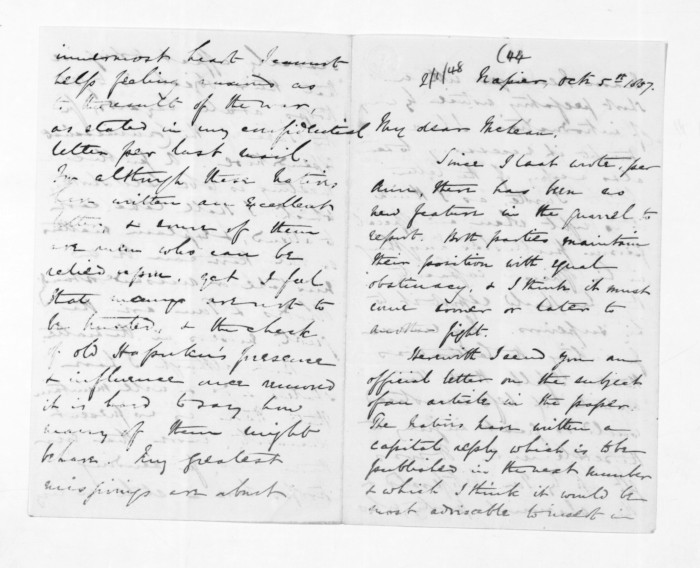 (44
2/1/48 Napier, Octr 5th 1857.
My dear McLean,
Since I last wrote, per
Ann, there has been no
new feature in the quarrel to
report. Both parties maintain
their position with equal
obstinacy, & I think it must
come sooner or later to
another fight.
Herewith I send you an
official letter on the subject
of an article in the paper.
The natives have written a
capital reply which is to be
published in the next number
& which I think it would be
most adviseable to insert in
innermost heart I cannot
help feeling as
to the result of the war,
as stated in my confidential
letter per last mail.
For although these natives
have written an excellent
letter & some of them
are men who can be
relied upon, yet I feel
that many are not to
be trusted, & the check
of old Hapuku's presence
& influence once removed
it is hard to say how
many of them might
behave. My greatest
misgivings are about